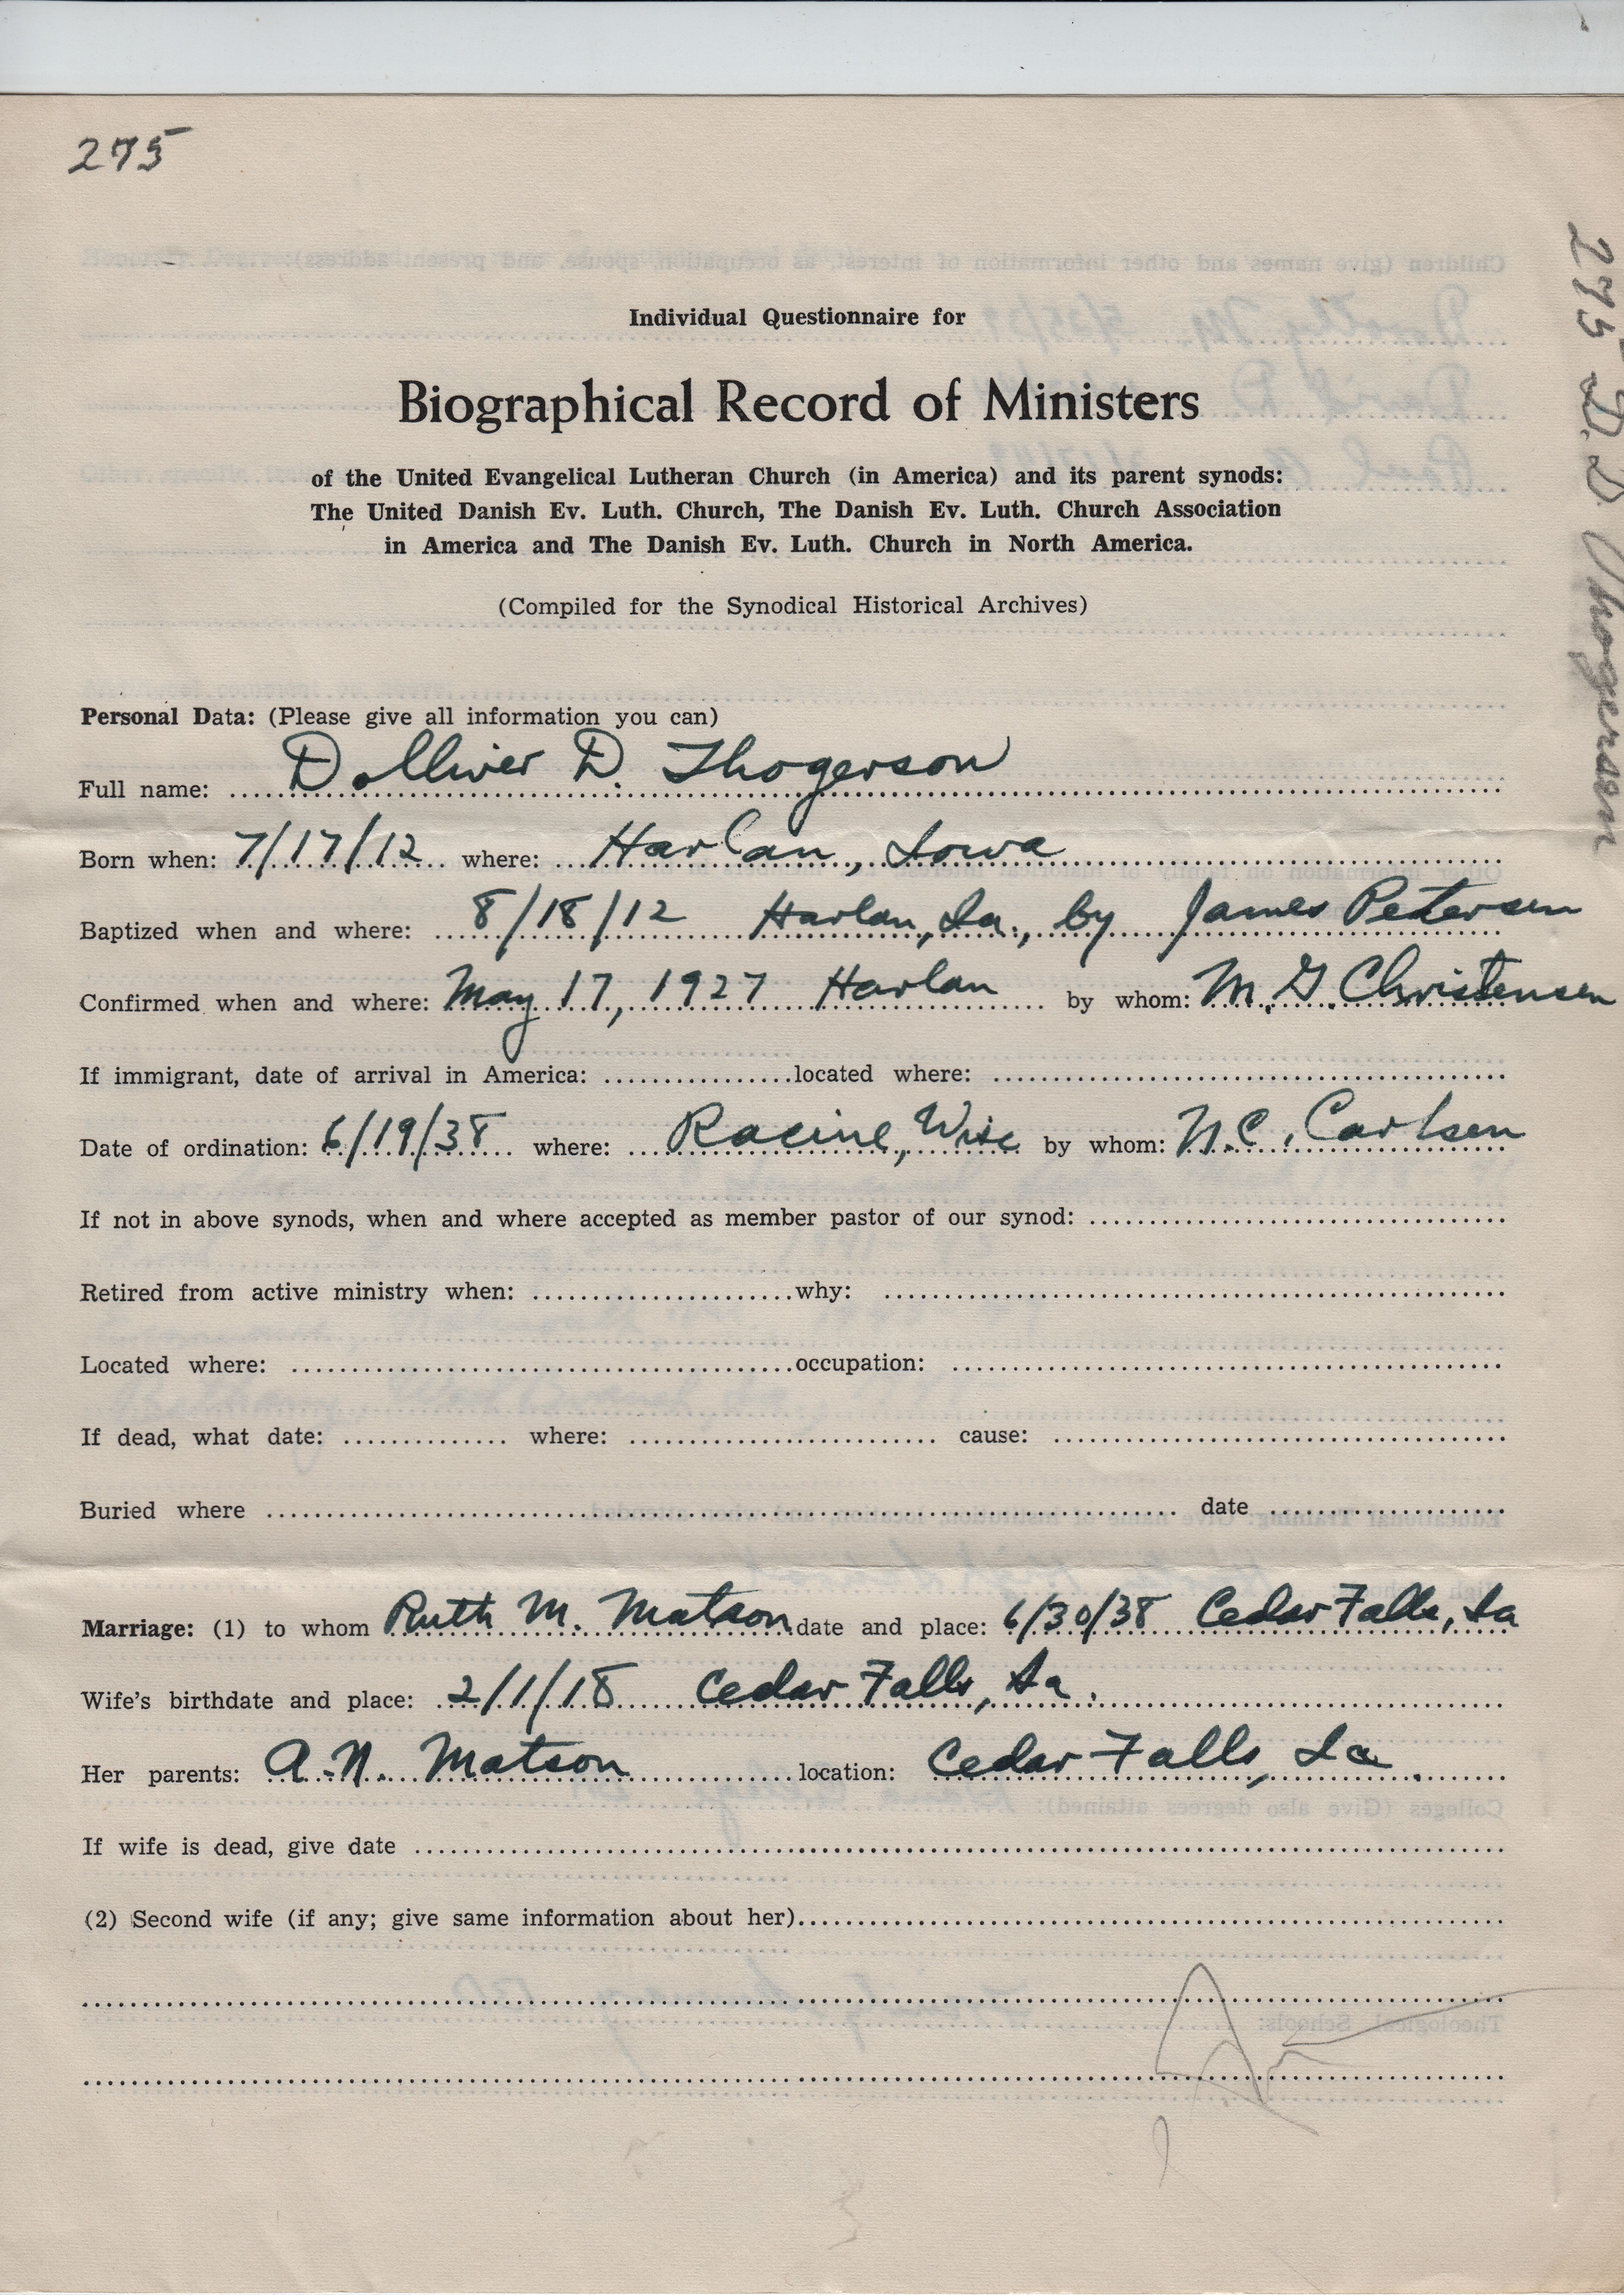 275
Individual Questionnaire for
Biographical Record of Ministers
of the United Evangelical Lutheran Church (in America) and its parent synods:
The United Danish Ev. Luth. Church, The Danish Ev. Luth. Church Association
in America and The Danish Ev. Luth. Church in North America.
(Compiled for the Synodical Historical Archives)
Personal Data: (Please give all information you can)
Full name: Dolliver D. Thogerson
Born when: 7/17/12 where: Harlan, Iowa
Baptized when and where: 8/18/12 Harlan, Ia., by James Petersen
Confirmed when and where: May 17, 1927 Harlan by whom: M. G. Christensen
If immigrant, date of arrival in America: located where:
Date of ordination: 6/19/38 where: Racine, Wisc by whom: N.C. Carlsen
If not in above synods, when and where accepted as member pastor of our synod:
Retired from active ministry when: why:
Located where: occupation:
If dead, what date: where: cause:
Buried where date
Marriage: (1) to whom Ruth M. Matson date and place: 6/30/38 Cedar Falls, Ia
Wife's birthdate and place: 2/1/18 Cedar Falls, Ia.
Her parents: A.N. Matson location: Cedar Falls, Ia.
If wife is dead, give date
(2) Second wife (if any; give same information about her)
275 D. D. Thogersen